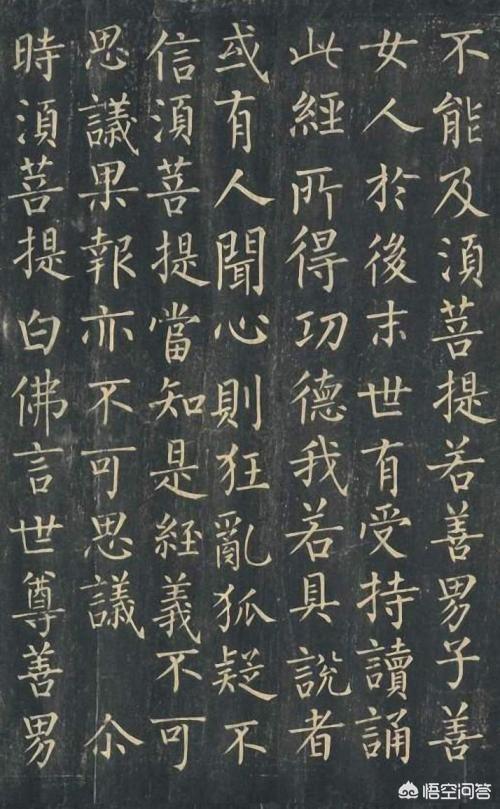 不能及湏菩提若善男子善
女人於後末世有受持讀誦
此經所得功德我若具說者
或有人聞心則狂亂狐疑不
信湏菩提當知是經義不可
思議果報亦不可思議 尒
時湏菩提白佛言世尊善男
悟空问答